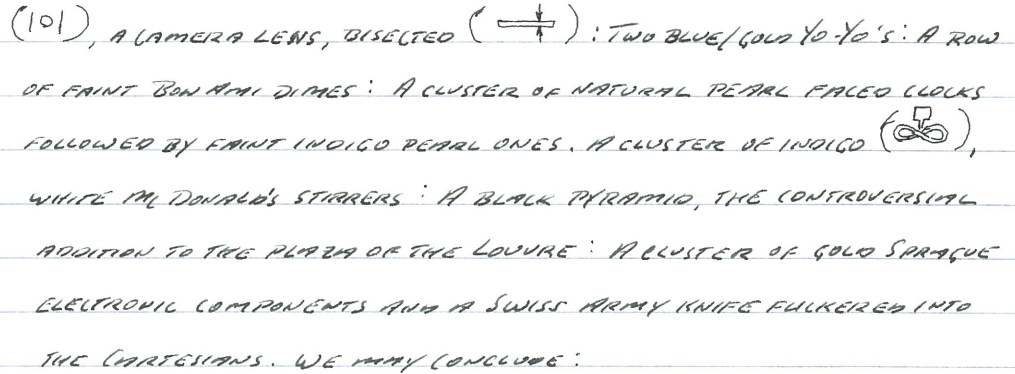 (101), A CAMERA LENS, BISECTED ( ) : TWO BLUE/GOLD YO-YO'S : A ROW
OF FAINT BON AMI DIMES : A CLUSTER OF NATURAL PEARL FACED CLOCKS
FOLLOWED BY FAINT INDIGO PEARL ONES. A CLUSTER OF INDIGO ( ),
WHITE MCDONALD'S STIRRERS : A BLACK PYRAMID, THE CONTROVERSIAL
ADDITION TO THE PLAZA OF THE LOUVRE : A CLUSTER OF GOLD SPRAGUE
ELECTRONIC COMPONENTS AND A SWISS ARMY KNIFE FULKERED INTO
THE CARTESIANS. WE MAY CONCLUDE :